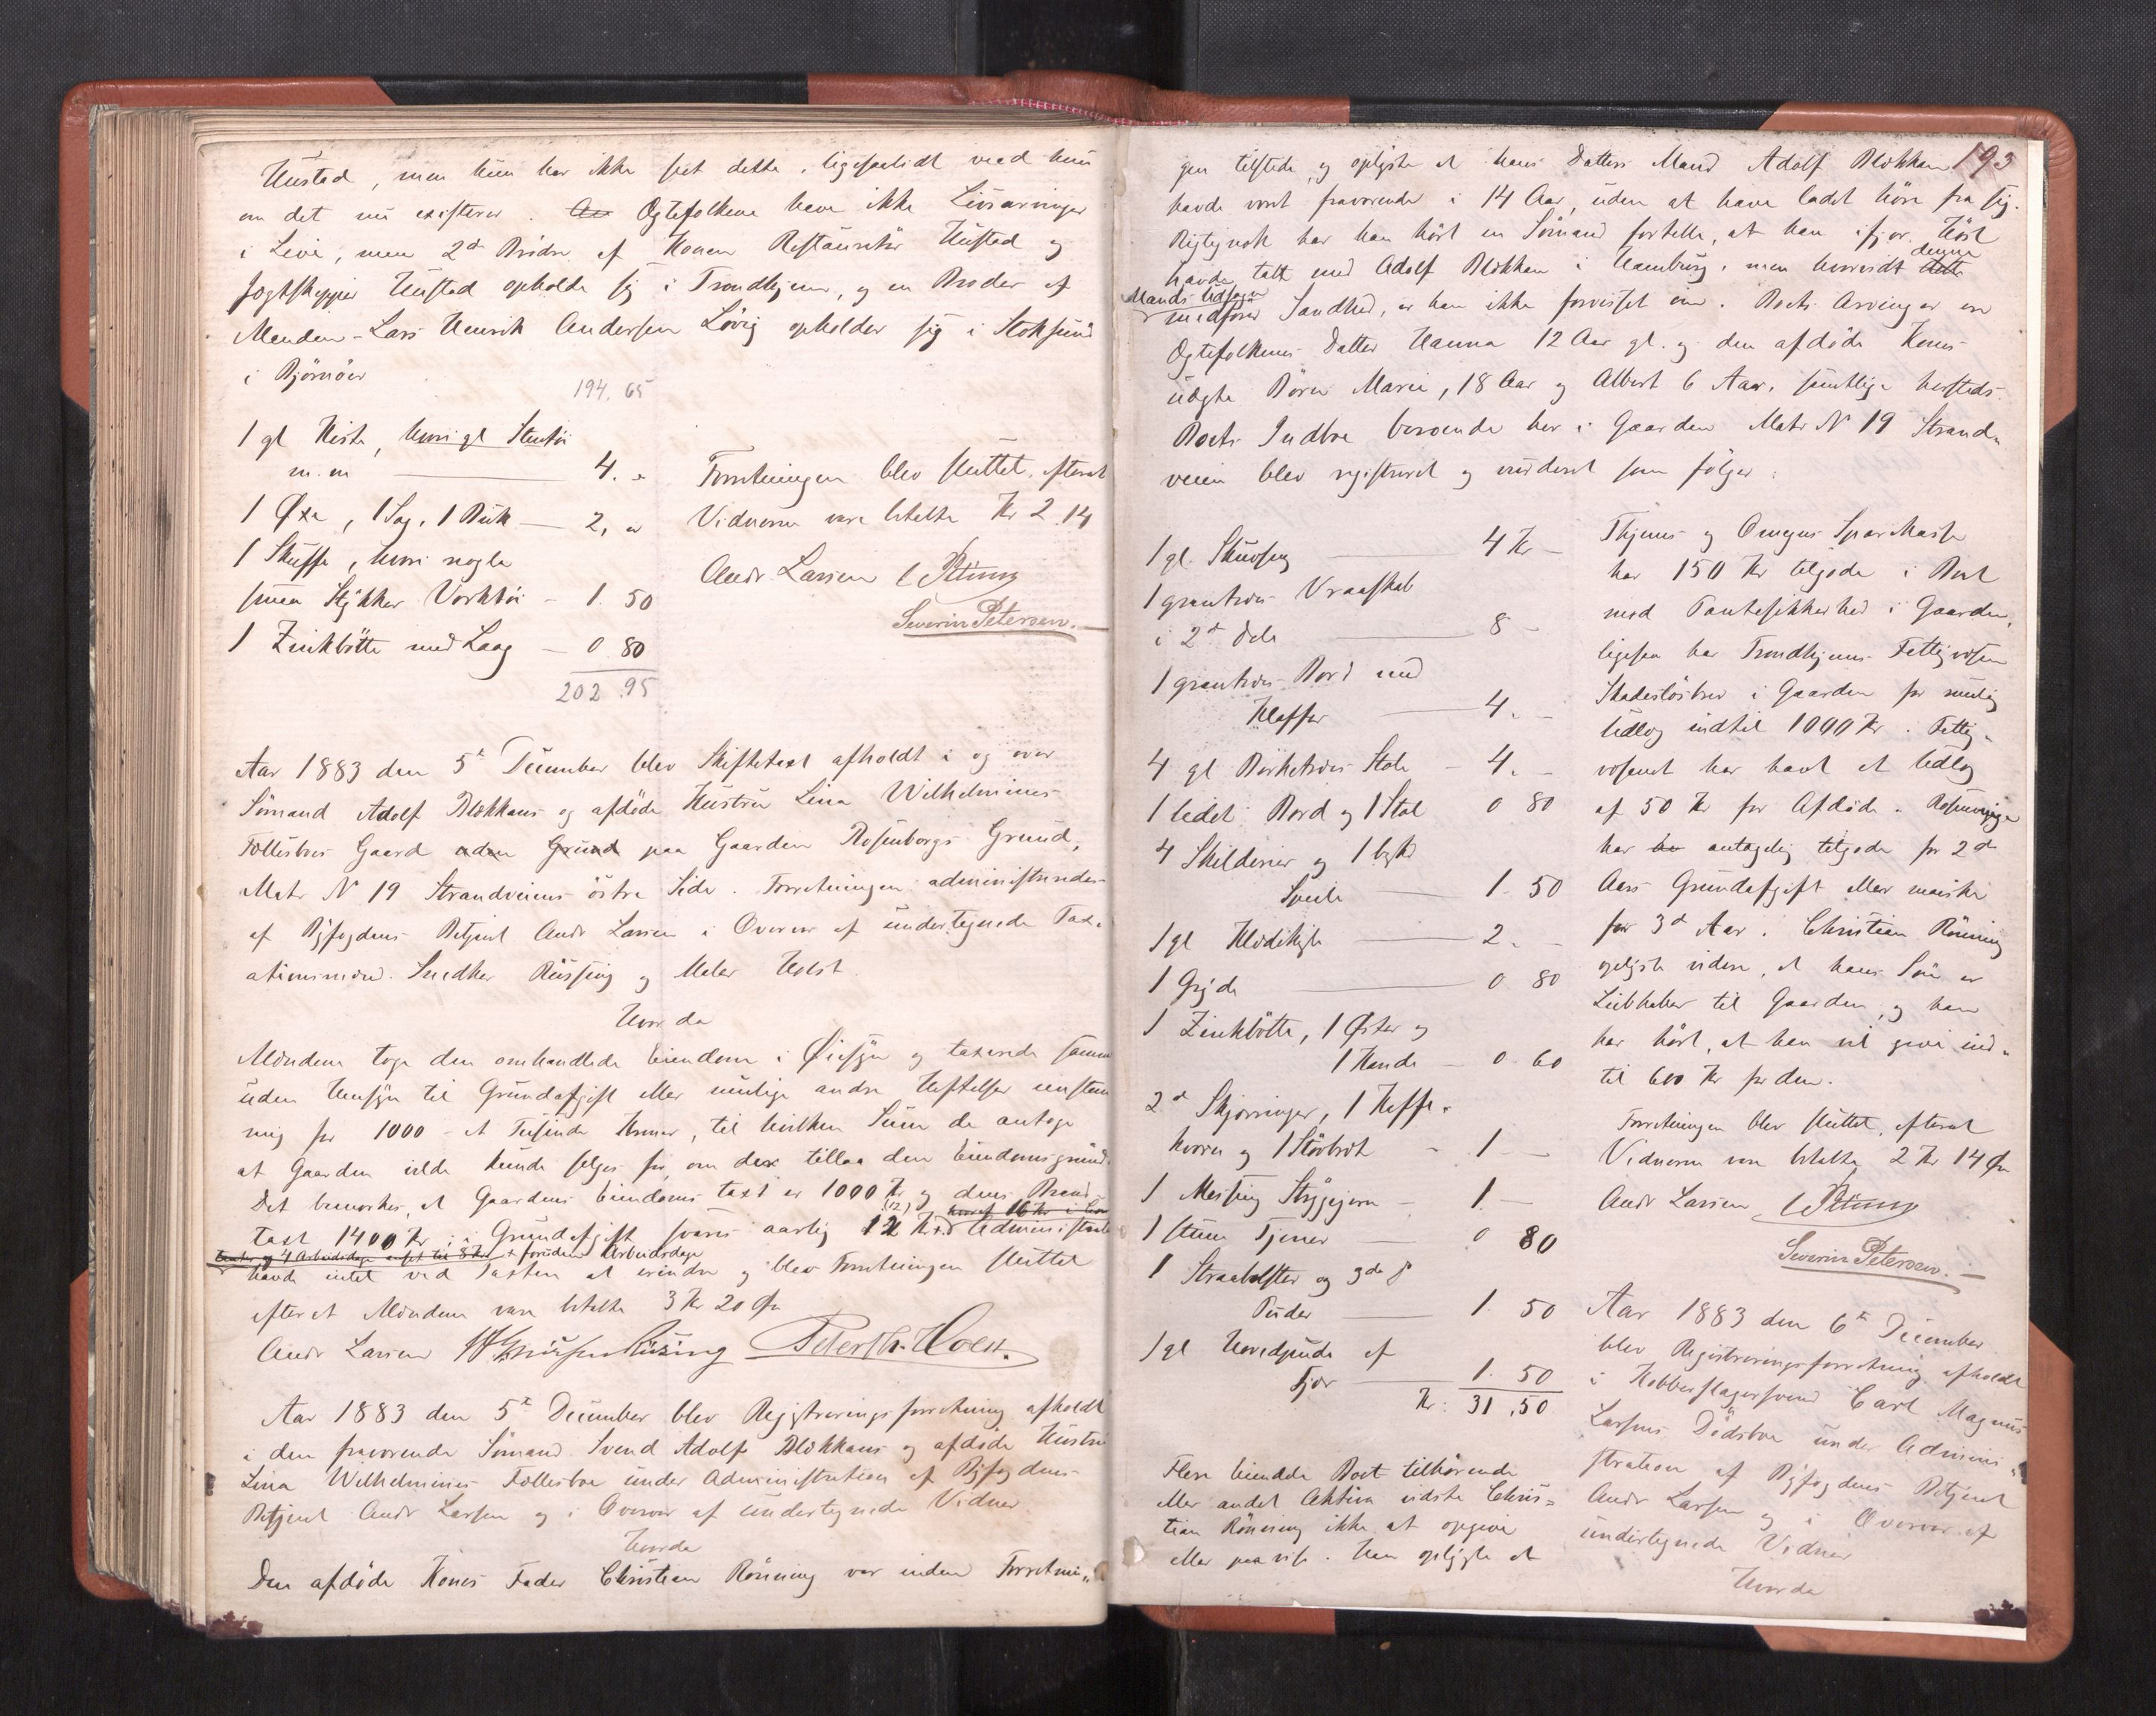 Hustad, men hun har ikke seet dette, ligesaalidt veed hun
om det nu existerer. Ægtefolkene have ikke Livsarvinger
i Live, men 2de Brødre af Konen Restauratør Hustad og
Jægtskipper Hustad opholde sig i Trondhjem, og en Broder af
Manden - Lars Henrik Andersen Løvig opholder sig i Stoksund
i Bjørnøer
194. 65
1 gl Kiste, hvori gl Stentøi
m. m 4. "
1 Øxe, 1 Sag, 1 Buk 2, "
1 Skuffe, hvori nogle
smaa Stykker Værktøi - 1. 50
1 Zinkbøtte med Laag - 0 80
202.95
Forretningen blev sluttet, efterat
Vidnerne vare betalte Kr 2.14
Andr Larsen
Severin Petersen.
Aar 1883 den 5te December blev Skiftetaxt afholdt i og over
Sømand Adolf Blokkans og afdøde Hustru Lina Wilhelmines
Fællesbos Gaard uden Grund paa Gaarden Rosenborgs Grund,
Matr No 19 Strandveiens østre Side. Forretningen administreredes
af Byfogdens Betjent Andr Larsen i Overvær af undertegnede Tax-
ationsmænd Snedker Rüssing og Maler Holst.
Hvorda
Mændene toge den omhandlede Eiendom i Øiesyn og taxerede samme
uden Hensyn til Grundafgift eller mulige andre Heftelser enstem
mig for 1000 - et Tusinde Kroner, til hvilken Sum de antoge
at Gaarden vilde kunde selges for, om der tillaa den Eiendomsgrund.
Det bemærkes, at Gaardens Eiendoms taxt er 1000 Kr og dens Brand
(12) hvoraf 16 Kr i
taxt 1400 Kr; i Grundafgift svares aarlig 12 Kr + Administrator
og 4 Arbeidsdage ansat til 8 Kr + foruden Arbeidsdage
havde intet ved Taxten at erindre og blev Forretningen sluttet
efterat Mændene vare betalte 3 Kr 20 Øre
Andr Larsen Peter Th. Holst.
Aar 1883 den 5te December blev Registreringsforretning afholdt
i den fraværende Sømand Svend Adolf Blokkans og afdøde Hustru
Lina Wilhelmines Fællesbo under Administration af Byfogdens
Betjent Andr Larsen og i Overvær af undertegnede Vidner
Hvorda
Den afdøde Kones Fader Christian Rönning var under Forretnin-
193
gen tilstede, og oplyste at hans Datters Mand Adolf Blokkan
havde vært fraværende i 14 Aar, uden at have ladet høre fra sig.
Rigtignok har han hørt en Sømand fortelle, at han ifjor Høst
denne
havde talt med Adolf Blokkan i Hamburg, men hvorvidt dette
Mands Udsagn
medfører Sandhed, er han ikke forvisset om. Boets Arvinger er
Ægtefolkenes Datter Hanna 12 Aar gl. og den afdøde Kones
uægte Børn Marie, 18 Aar og Albert 6 Aar, samtlige hersteds.
Boets Indbo beroende her i Gaarden Matr No 19 Strand-
veien blev registreret og vurderet som følger:
1 gl. Skuvseng 4 Kr -
1 grantræs Vraaskab
i 2de Dele 8 -
1 grantræs Bord med
Klaffer 4. -
4 gl Birketræs Stole - 4. -
1 lidet Bord og 1 Stol 0 80
4 Skilderier og 1 lyst
Speile 1. 50
1 gl Klædekiste 2. -
1 Gryde 0 80
1 Zinkbøtte, 1 Øster og
1 Kande - 0 60
2de Skjæringer, 1 Kaffe-
kværn og 1 Støvbræt - 1 -
1 Messing Strygejern - 1 -
1 stum Tjener - 0 80
1 Straabolster og 3de
Puder 1. 50
1 gl Hovedpude af
Fjær 1. 50
Kr: 31,50
Flere Eiendele Boet tilhørende
eller andet Aktiva vidste Chris-
tian Rönning ikke at opgive
eller paavise. Han oplyste at
Thjems og Omegns Sparekasse
har 150 Kr tilgode i Boet
mod Pantesikkerhed i Gaarden,
ligesaa har Trondhjems Fattigvæsen
Skadesløsbrev i Gaarden for mulig
Udlæg indtil 1000 Kr. Fattig-
væsenet har havt et Udlæg
af 50 Kr for Afdøde. Rosenvinge
har antagelig tilgode for 2de
Aars Grundafgift eller maaske
for 3de Aar. Christian Rönning
oplyste videre, at hans Søn er
Liebhaber til Gaarden, og han
har hørt, at han vil give ind-
til 600 Kr for den.
Forretningen blev sluttet, efterat
Vidnerne vare betalte 2 Kr 14 Øre
Andr Larsen
Severin Petersen.
Aar 1883 den 6te December
blev Registreringsforretning afholdt
i Kobberslagersvend Carl Magnus
Larsens Dødsbo under Admini-
stration af Byfogdens Betjent
Andr Larsen og i Overvær af
undertegnede Vidner
Hvorda